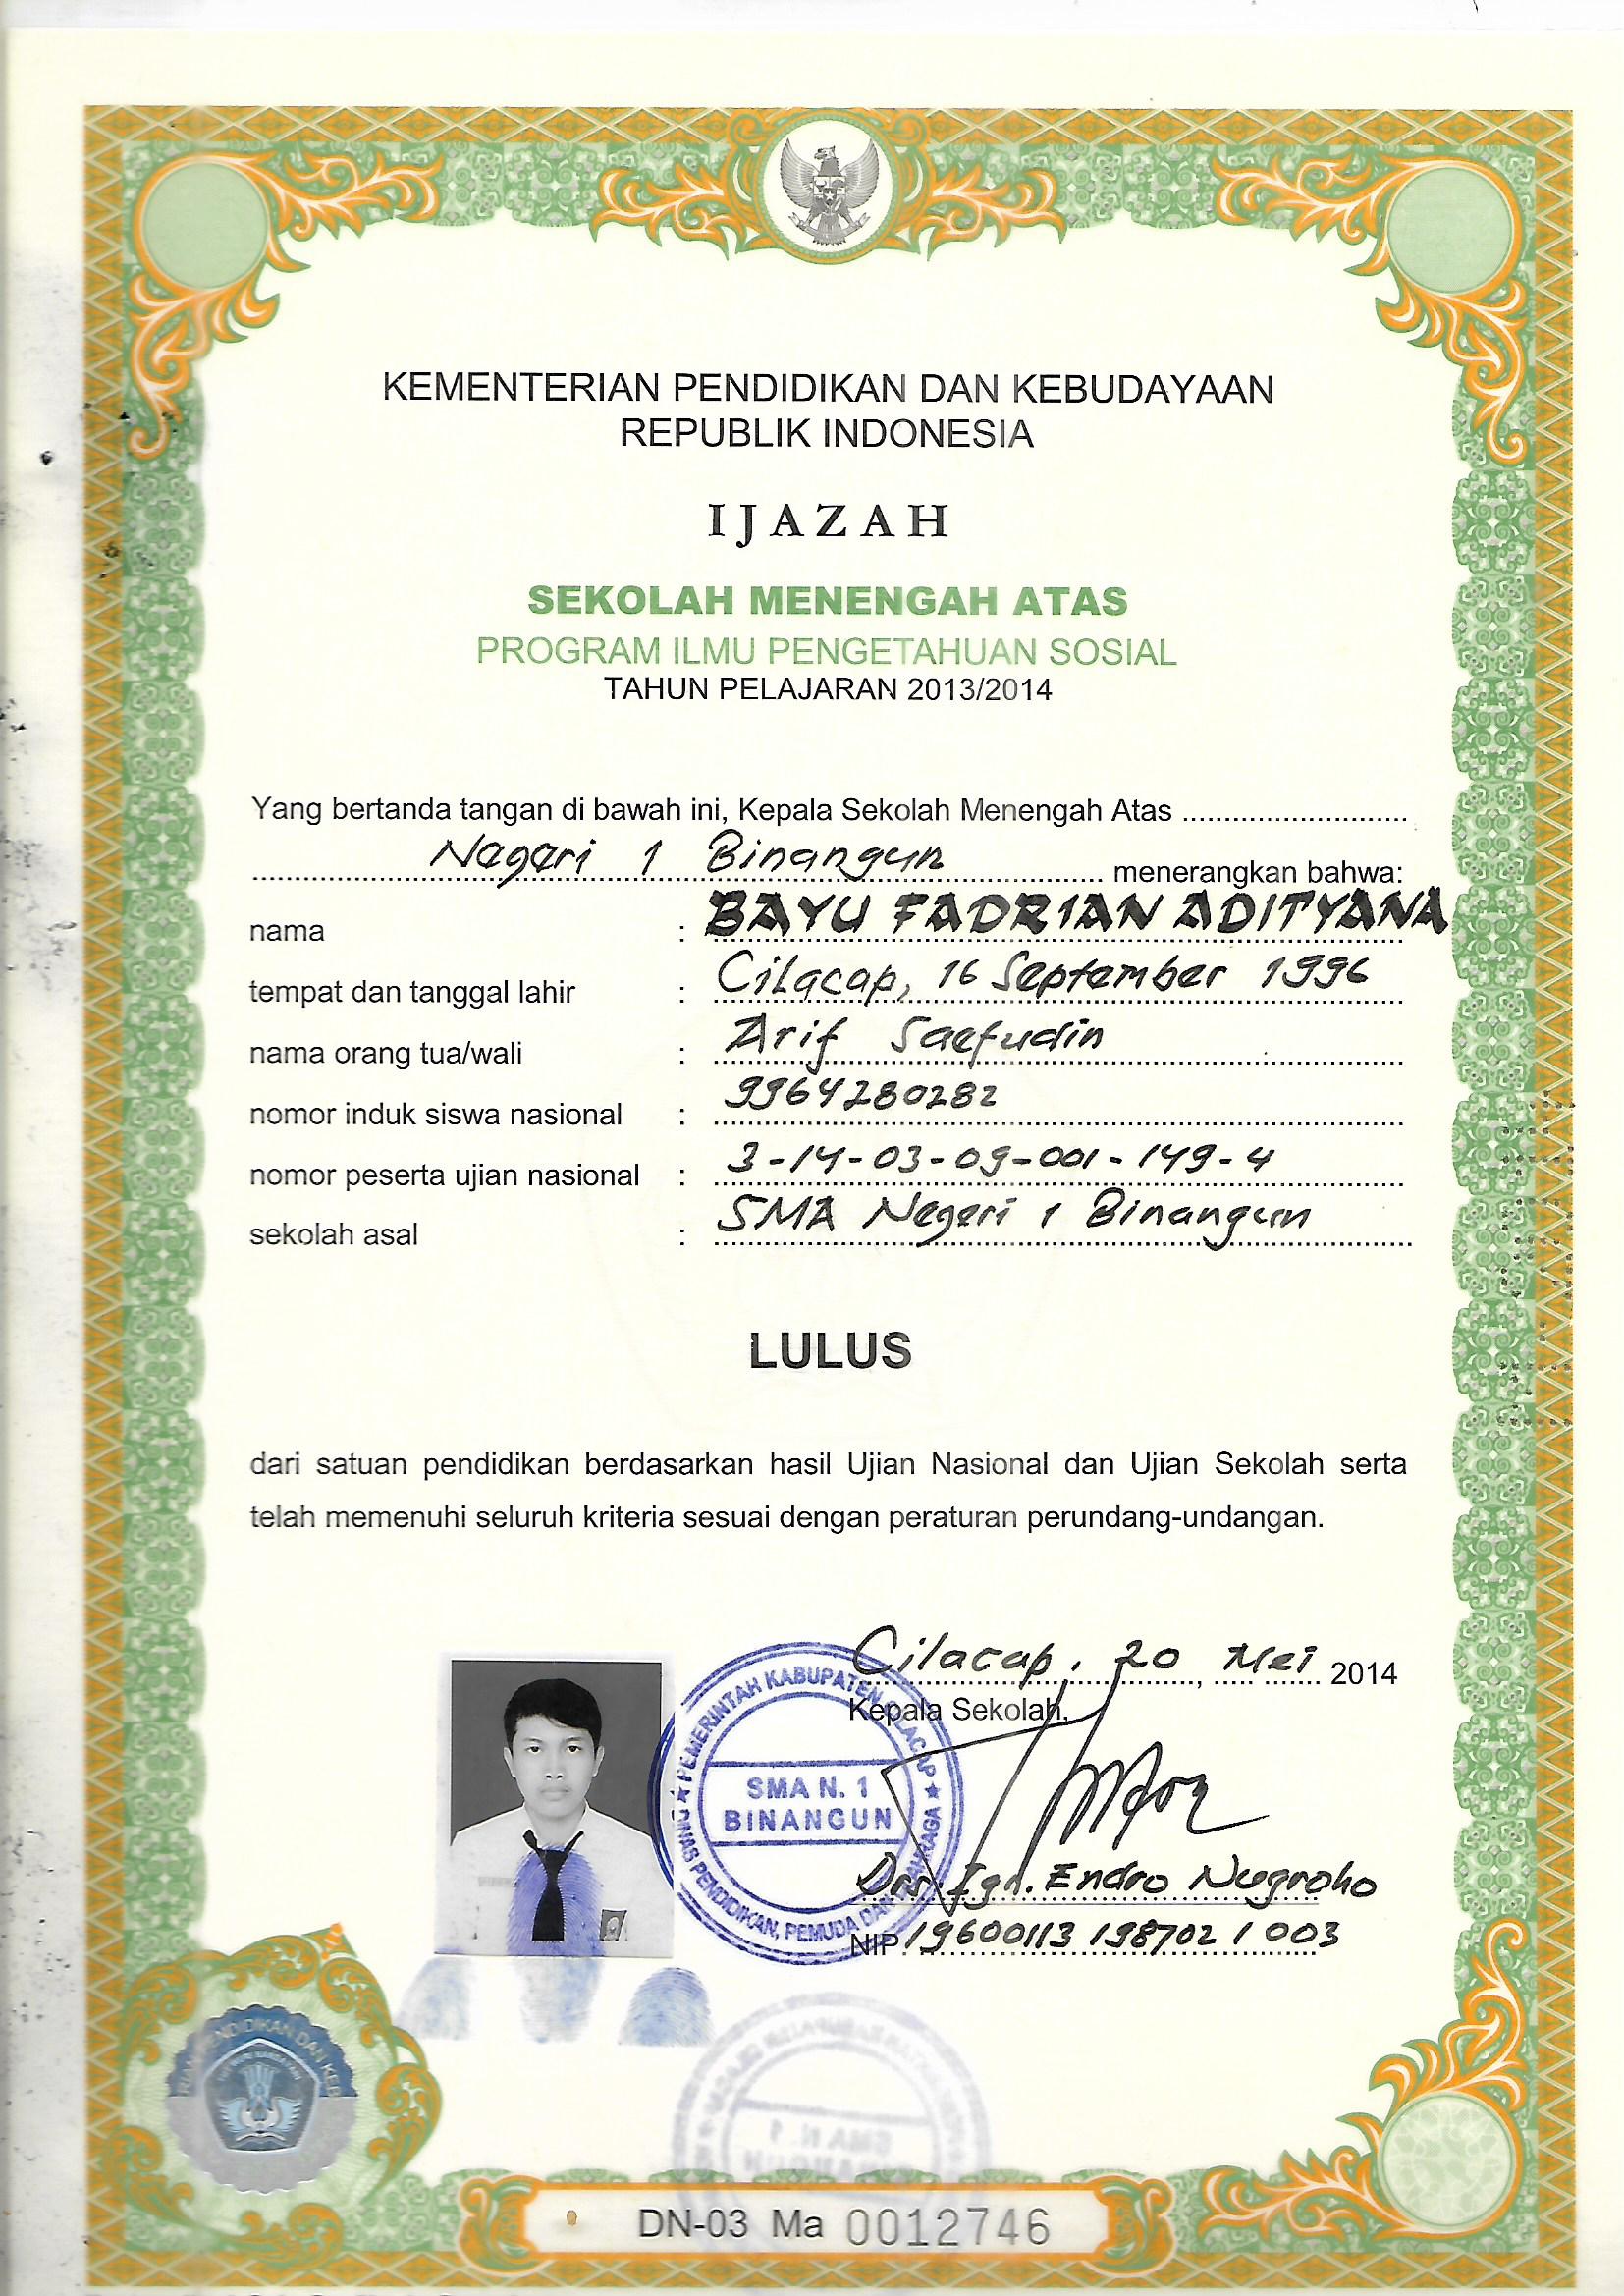 KEMENTERIAN PENDIDIKAN DAN KEBUDAYAAN
REPUBLIK INDONESIA
IJAZAH
SEKOLAH MENENGAH ATAS
PROGRAM ILMU PENGETAHUAN SOSIAL
TAHUN PELAJARAN 2013/2014
Yang bertanda tangan di bawah ini, Kepala Sekolah Menengah Atas ...........................
Negeri 1 Binangun menerangkan bahwa:
nama : BAYU FADRIAN ADITYANA
tempat dan tanggal lahir : Cilacap, 16 September 1996
nama orang tua/wali : Arif Saefudin
nomor induk siswa nasional : 9964280282
nomor peserta ujian nasional : 3-14-03-09-001-149-4
sekolah asal : SMA Negeri 1 Binangun
LULUS
dari satuan pendidikan berdasarkan hasil Ujian Nasional dan Ujian Sekolah serta
telah memenuhi seluruh kriteria sesuai dengan peraturan perundang-undangan.
Cilacap, 20 Mei 2014
Kepala Sekolah,
PEMERINTAH KABUPATEN CILACAP
SMA N. 1
BINANGUN
DINAS PENDIDIKAN, PEMUDA DAN OLAHRAGA
Drs. Ign. Endro Nugroho
NIP 19600113 198702 1 003
DN-03 Ma 0012746